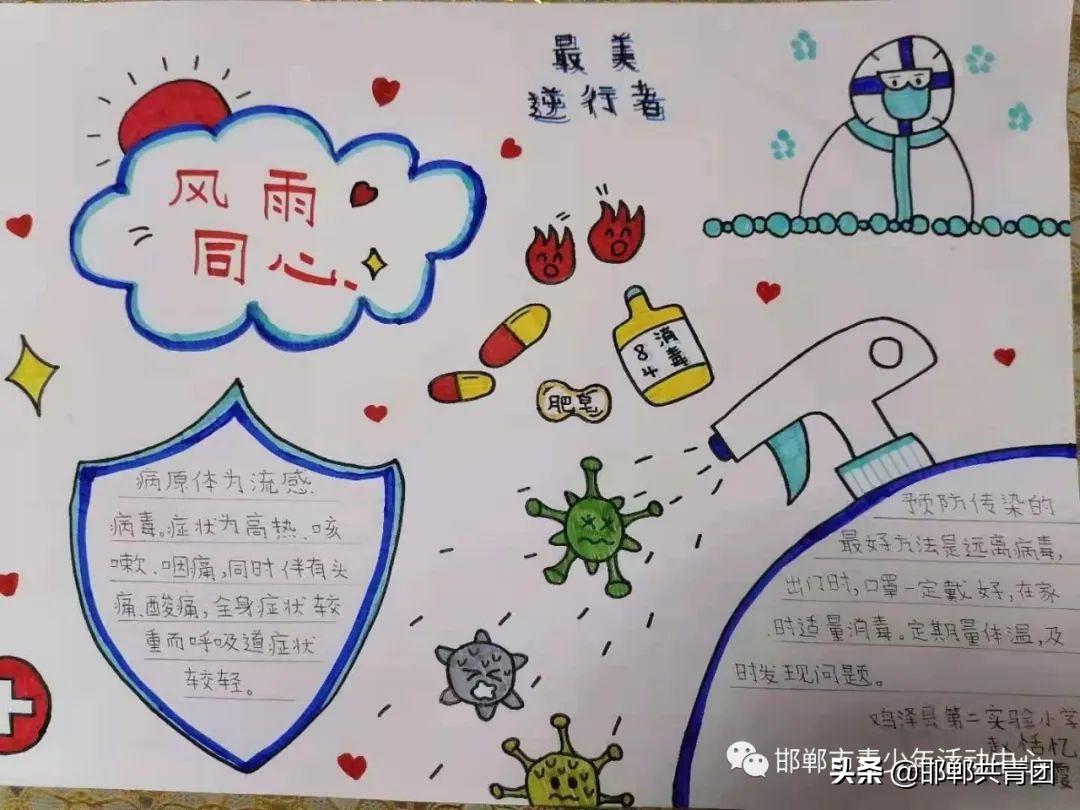 最美
逆行者
风雨
同心
消毒
84
肥皂
病原体为流感
病毒。症状为高热、咳
嗽、咽痛,同时伴有头
痛、酸痛,全身症状较
重而呼吸道症状
较轻。
预防传染的
最好方法是远离病毒,
出门时,口罩一定戴好,在家
时适量消毒。定期量体温,及
时发现问题。
鸡泽县第二实验小学
赵恬忆
邯郸市青少年活动中心
头条 @邯郸共青团
霞